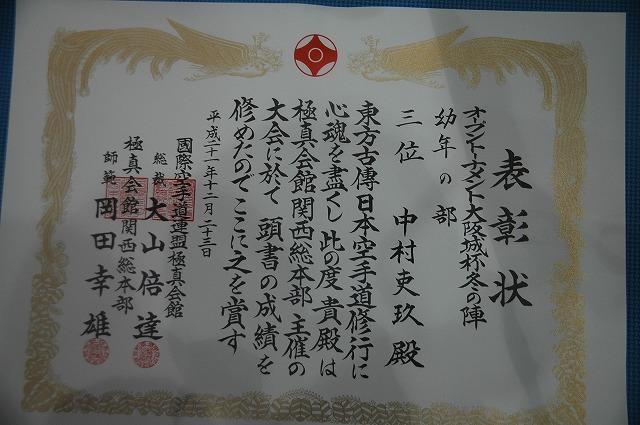 表彰状
オープントーナメント大阪城杯冬の陣
幼年の部
三位 中村吏玖殿
東方古傳日本空手道修行に
心魂を盡くし此の度貴殿は
極真会館関西総本部主催の
大会に於て頭書の成績を
修めたのでここに之を賞す
平成二十一年十二月二十三日
國際空手道連盟極真会館
総裁 大山倍達
極真会館関西総本部
師範 岡田幸雄